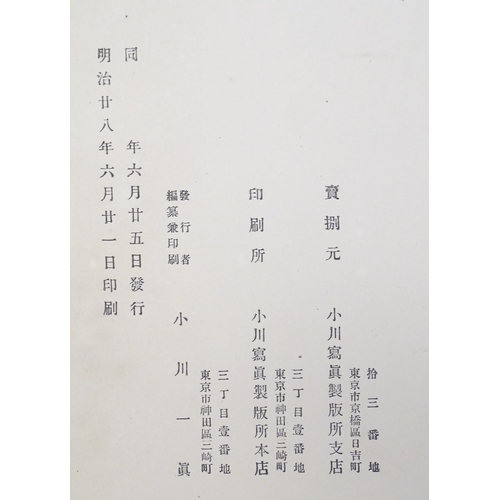 明治廿八年六月廿一日印刷
同年六月廿五日發行
編纂兼印刷
發行者
小川一眞
東京市神田區三崎町
三丁目壹番地
印刷所
小川寫眞製版所本店
東京市神田區三崎町
三丁目壹番地
賣捌元
小川寫眞製版所支店
東京市京橋區日吉町
拾三番地